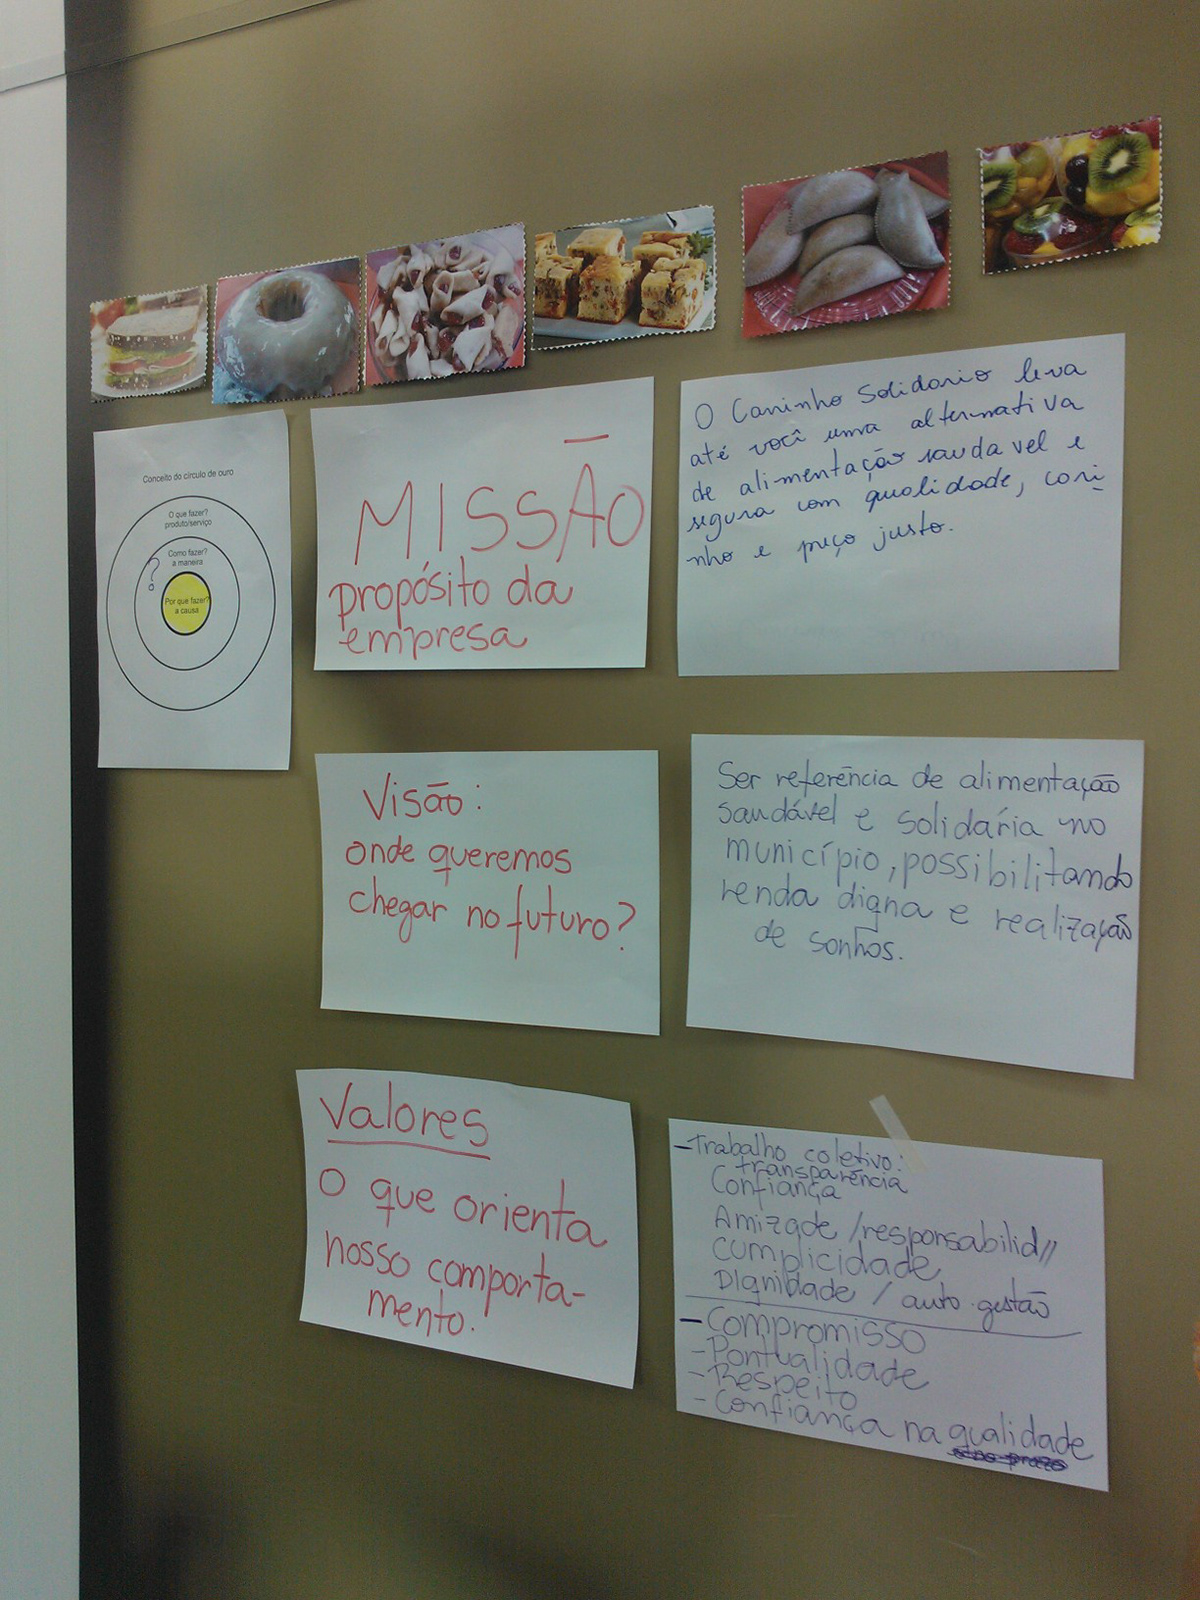 Conceito do círculo de ouro
O que fazer?
produto/serviço
Como fazer?
a maneira
?
Por que fazer?
a causa
MISSÃO
propósito da
empresa
O Carrinho Solidario leva
até você uma alternativa
de alimentação saudavel e
segura com qualidade, cari-
nho e preço justo.
Visão:
onde queremos
chegar no futuro?
Ser referência de alimentação
saudável e solidária no
município, possibilitando
renda digna e realização
de sonhos.
Valores
O que orienta
nosso comporta-
mento.
- Trabalho coletivo:
transparência
Confiança
Amizade / responsabilid//
cumplicidade
Dignidade / auto gestão
- Compromisso
- Pontualidade
- Respeito
- Confiança na qualidade
e no prazo